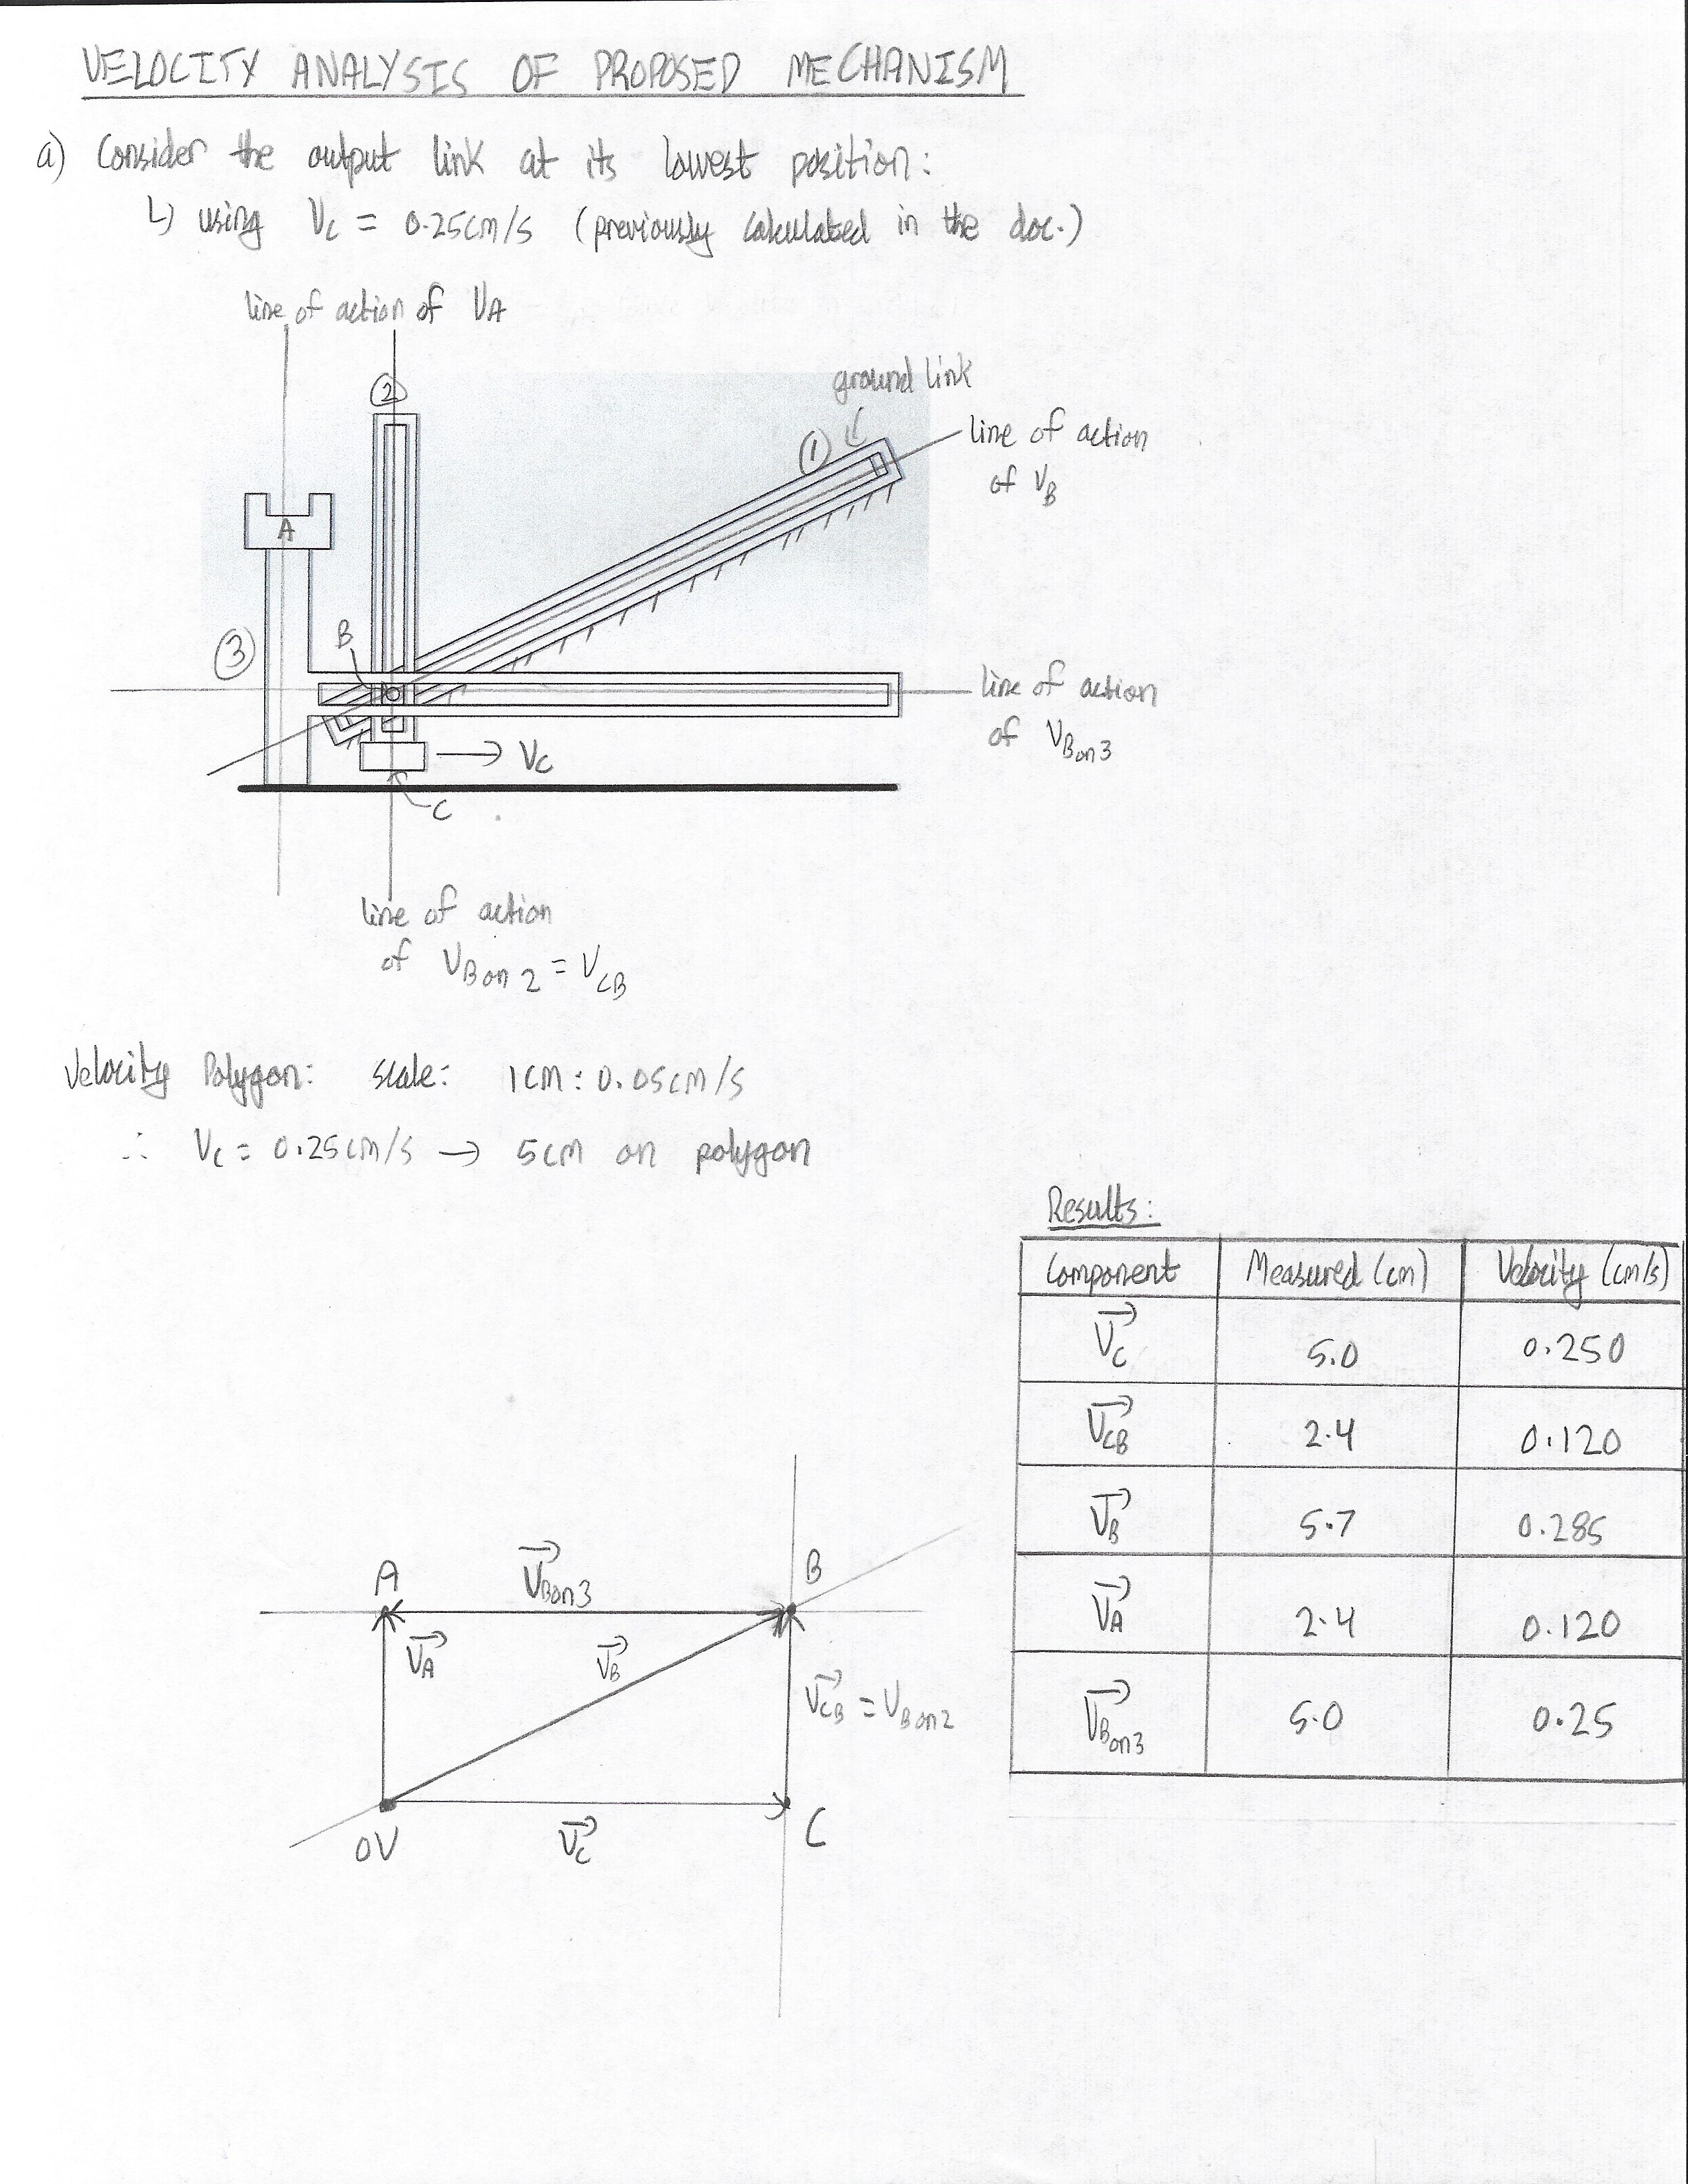 VELOCITY ANALYSIS OF PROPOSED MECHANISM
a) Consider the output link at its lowest position:
↳ using Vc = 0.25cm/s (previously calculated in the doc.)
line of action of VA
②
ground link
①
line of action
of VB
A
③
B
line of action
of VB on 3
→ Vc
C
line of action
of VB on 2 = VCB
Velocity Polygon: scale: 1cm : 0.05cm/s
∴ Vc = 0.25cm/s → 5cm on polygon
Results:
Component Measured (cm) Velocity (cm/s)
Vc 5.0 0.250
VCB 2.4 0.120
VB 5.7 0.285
VA 2.4 0.120
VBon3 5.0 0.25
A
VBon3
B
VA
VB
VCB = VBon2
OV
Vc
C